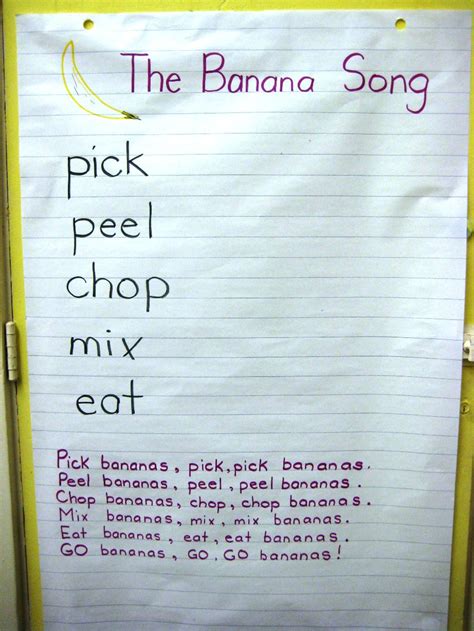 The Banana Song
pick
peel
chop
mix
eat
Pick bananas, pick, pick bananas.
Peel bananas, peel, peel bananas.
Chop bananas, chop, chop bananas.
Mix bananas, mix, mix bananas.
Eat bananas, eat, eat bananas.
GO bananas, GO, GO bananas!